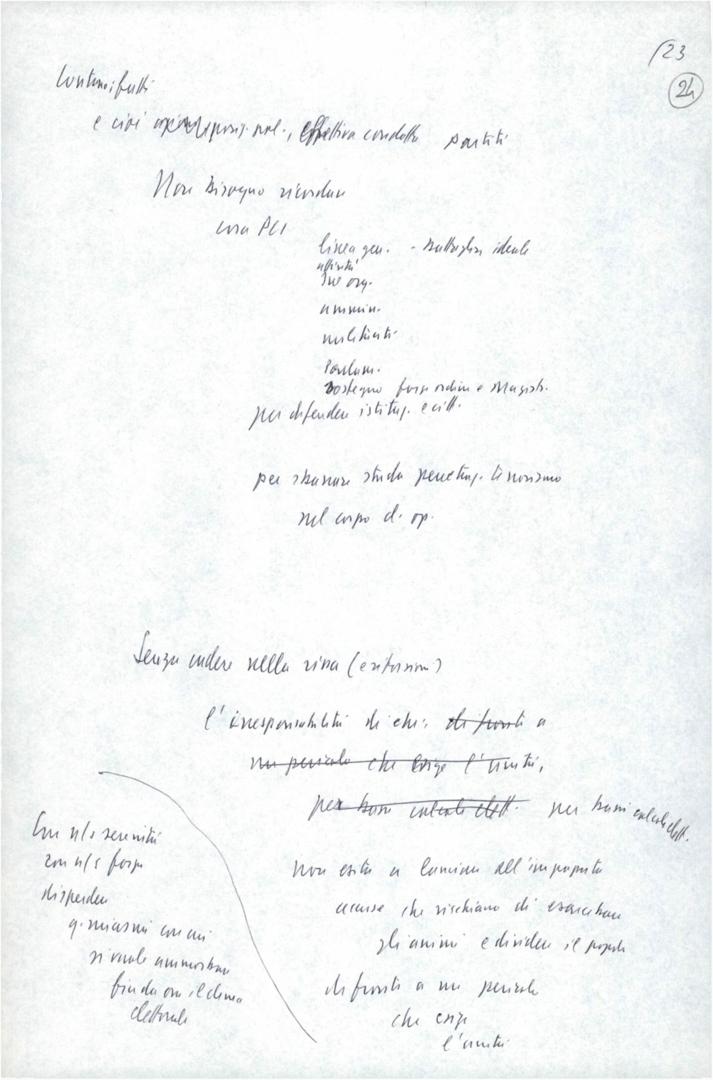 /23
24
Contano i fatti
e cioè nel., effettiva condotta partiti
Non bisogno ricordare
cosa PCI
linea gen. - battaglia ideale
attività
sue org.
ammin.
militanti
Parlam.
sostegno forze ordine e Magistr.
per difendere istituz. e citt.
per sbarrare strada penetraz. terrorismo
nel corpo d. op.
Senza cadere nella rissa (evitarsi)
l'irresponsabilità di chi, di fronte a
un pericolo che esige l'unità,
per bassi calcoli elett. per bassi calcoli elett.
non esita a lanciare all'impazzata
accuse che rischiano di esacerbare
gli animi e dividere il popolo
di fronte a un pericolo
che esige
l'unità
Con n/s serenità
con n/s forza
disperdere
q. miasmi con cui
si vuole ammorbare
fin da ora il clima
elettorale